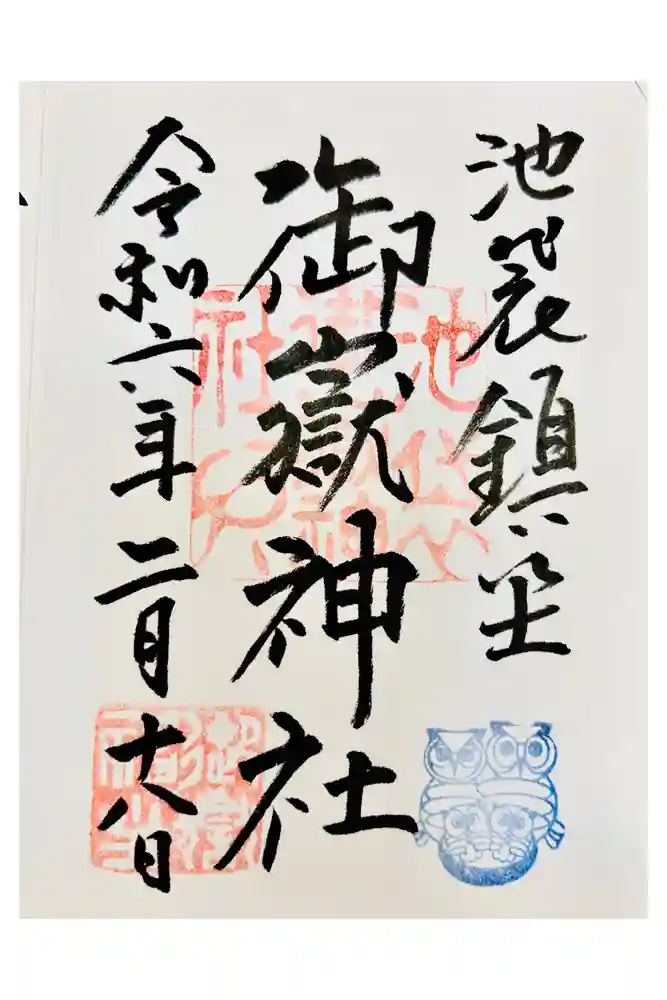 池袋鎮座
御嶽神社
令和六年二月十八日